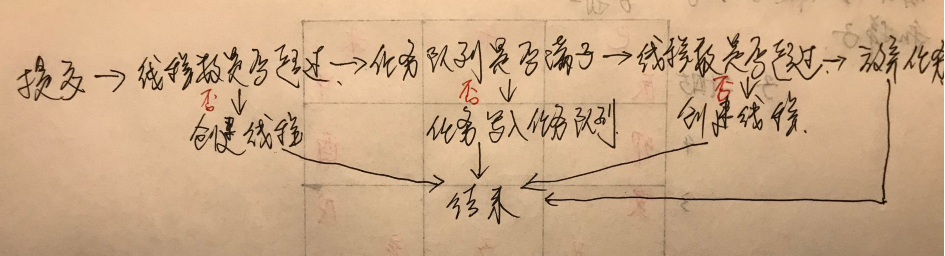 提交→线程数是否超过→任务队列是否满了→线程数是否超过→放弃任务
否 否 否
创建线程 任务写入任务队列 创建线程
结束